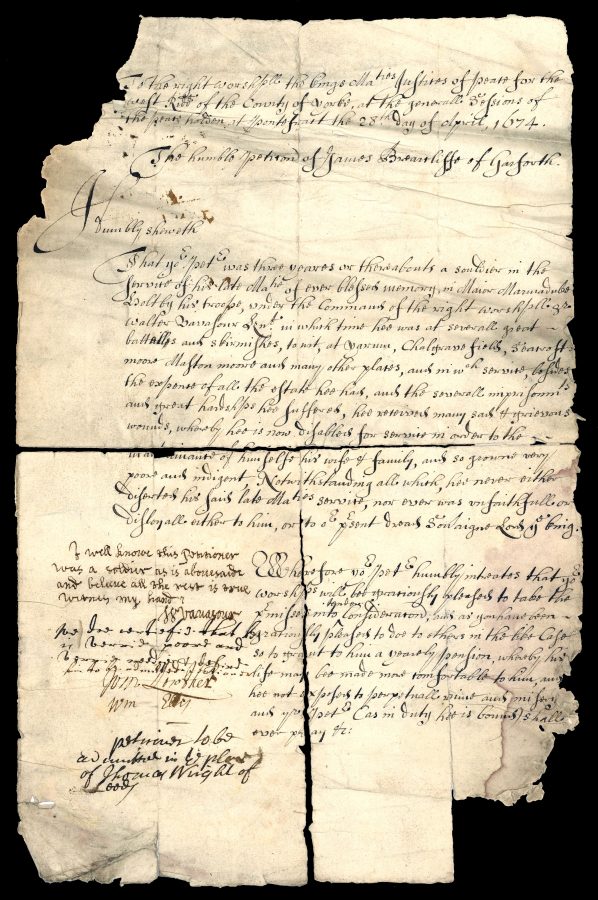 To the right worshipll the kings Maties Justices of Peace for the
west Rid of the County of Yorke, at the generall Sessions of
the peace holden at Pontefract the 28th day of April, 1674.
The humble peticon of James Brearcliffe of Garforth.
Humbly sheweth
That yor Petr was three yeares or thereabouts a souldier in the
service of his late Matie of ever blessed memory, in Maior Marmaduke
Holtby his troope, under the Command of the right worshpll Sr
Walter Vavasour in which time hee was at severall great
battells and skirmishes, to wit, at Yarum, Chalgrave field, Seacroft
moore Maston moore and many other places, and in wch service, besides
the expence of all the estate hee had, and the severall imprisonmts
and great hardships hee suffered, hee received many sad & grievous
wounds, whereby hee is now disabled for service in order to the
maintenance of himselfe his wife & family, and so growne very
poore and indigent Notwithstanding all which, hee never either
diserted his said late Maties service, nor ever was unfaithfull or
disloyall either to him, or to or psent dread Soveraigne Lord ye king.
Wherefore yor Petr humbly intreates that yor
worships will bee graciously pleased to take the
pmisses into yor consideracon, and as you have been
graciously pleased to doe to others in the like Case
so to grant to him a yearely pension, whereby his
life may bee made more comfortable to him, and
hee not exposed to perpetuall ruine and misery
and yor Petr (as in duty hee is bound) shall
ever pray &c:
I well knowe this Petitioner
was a soldier as is abovesaide
and beleive all the rest is true
witnes my hand
W Vavasour
wee doe certefie that
is verrie poore and

John Lowther
Wm Ellis
petitioner to be
admitted in ye place
of Thomas Wright of
Leeds